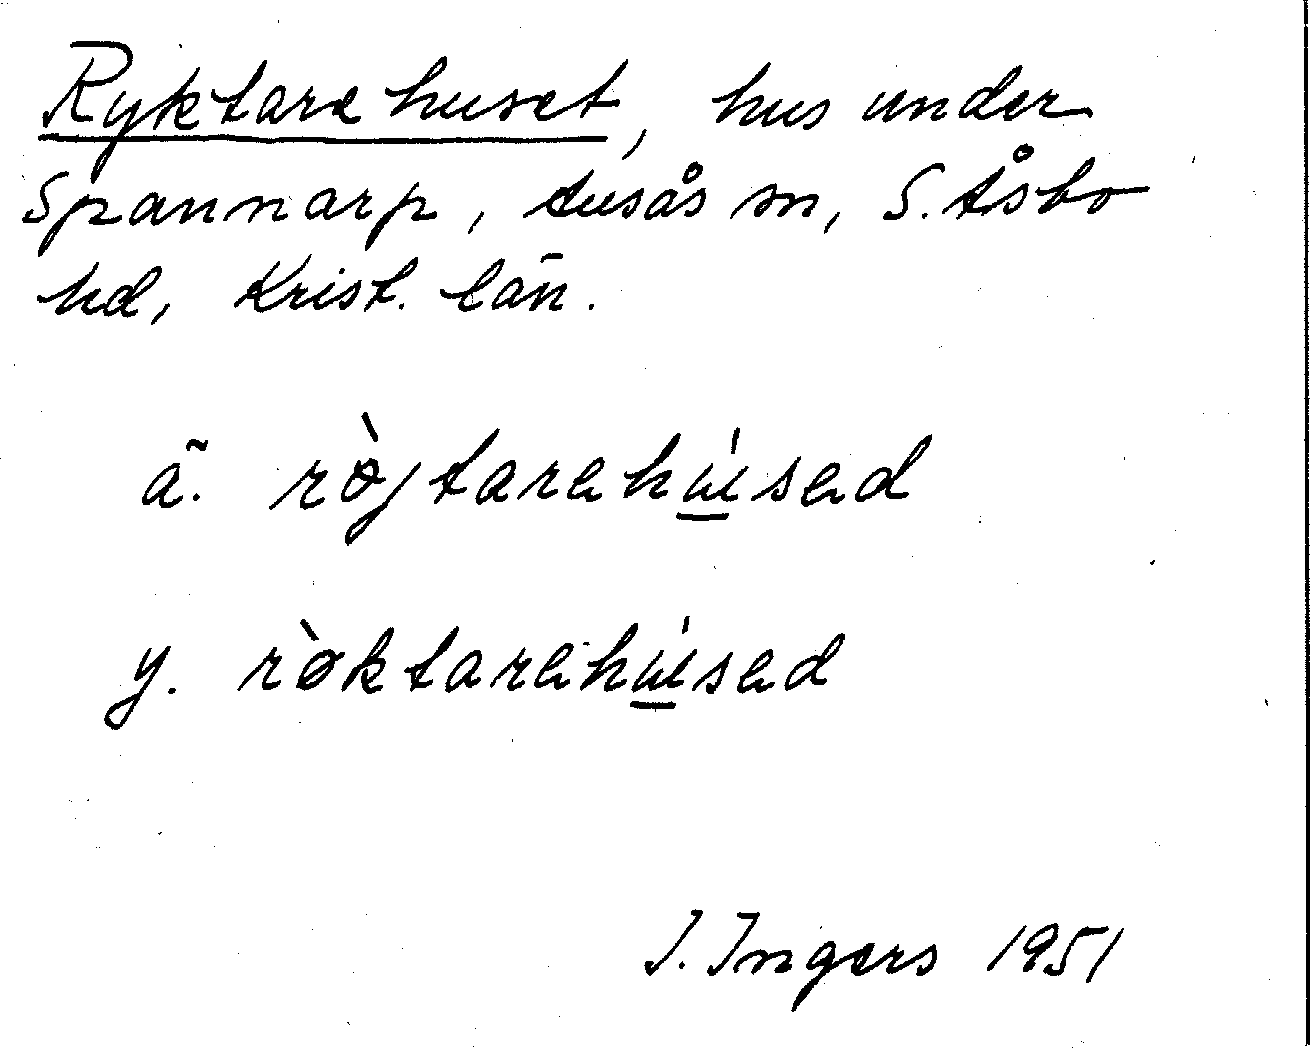 Ryktarehuset, hus under
Spannarp, Ausås sn, S. Åsbo
hd, Krist. län.
ä. rø̀jtarehú̲sed
y. rø̀ktarehú̲sed
I. Ingers 1951